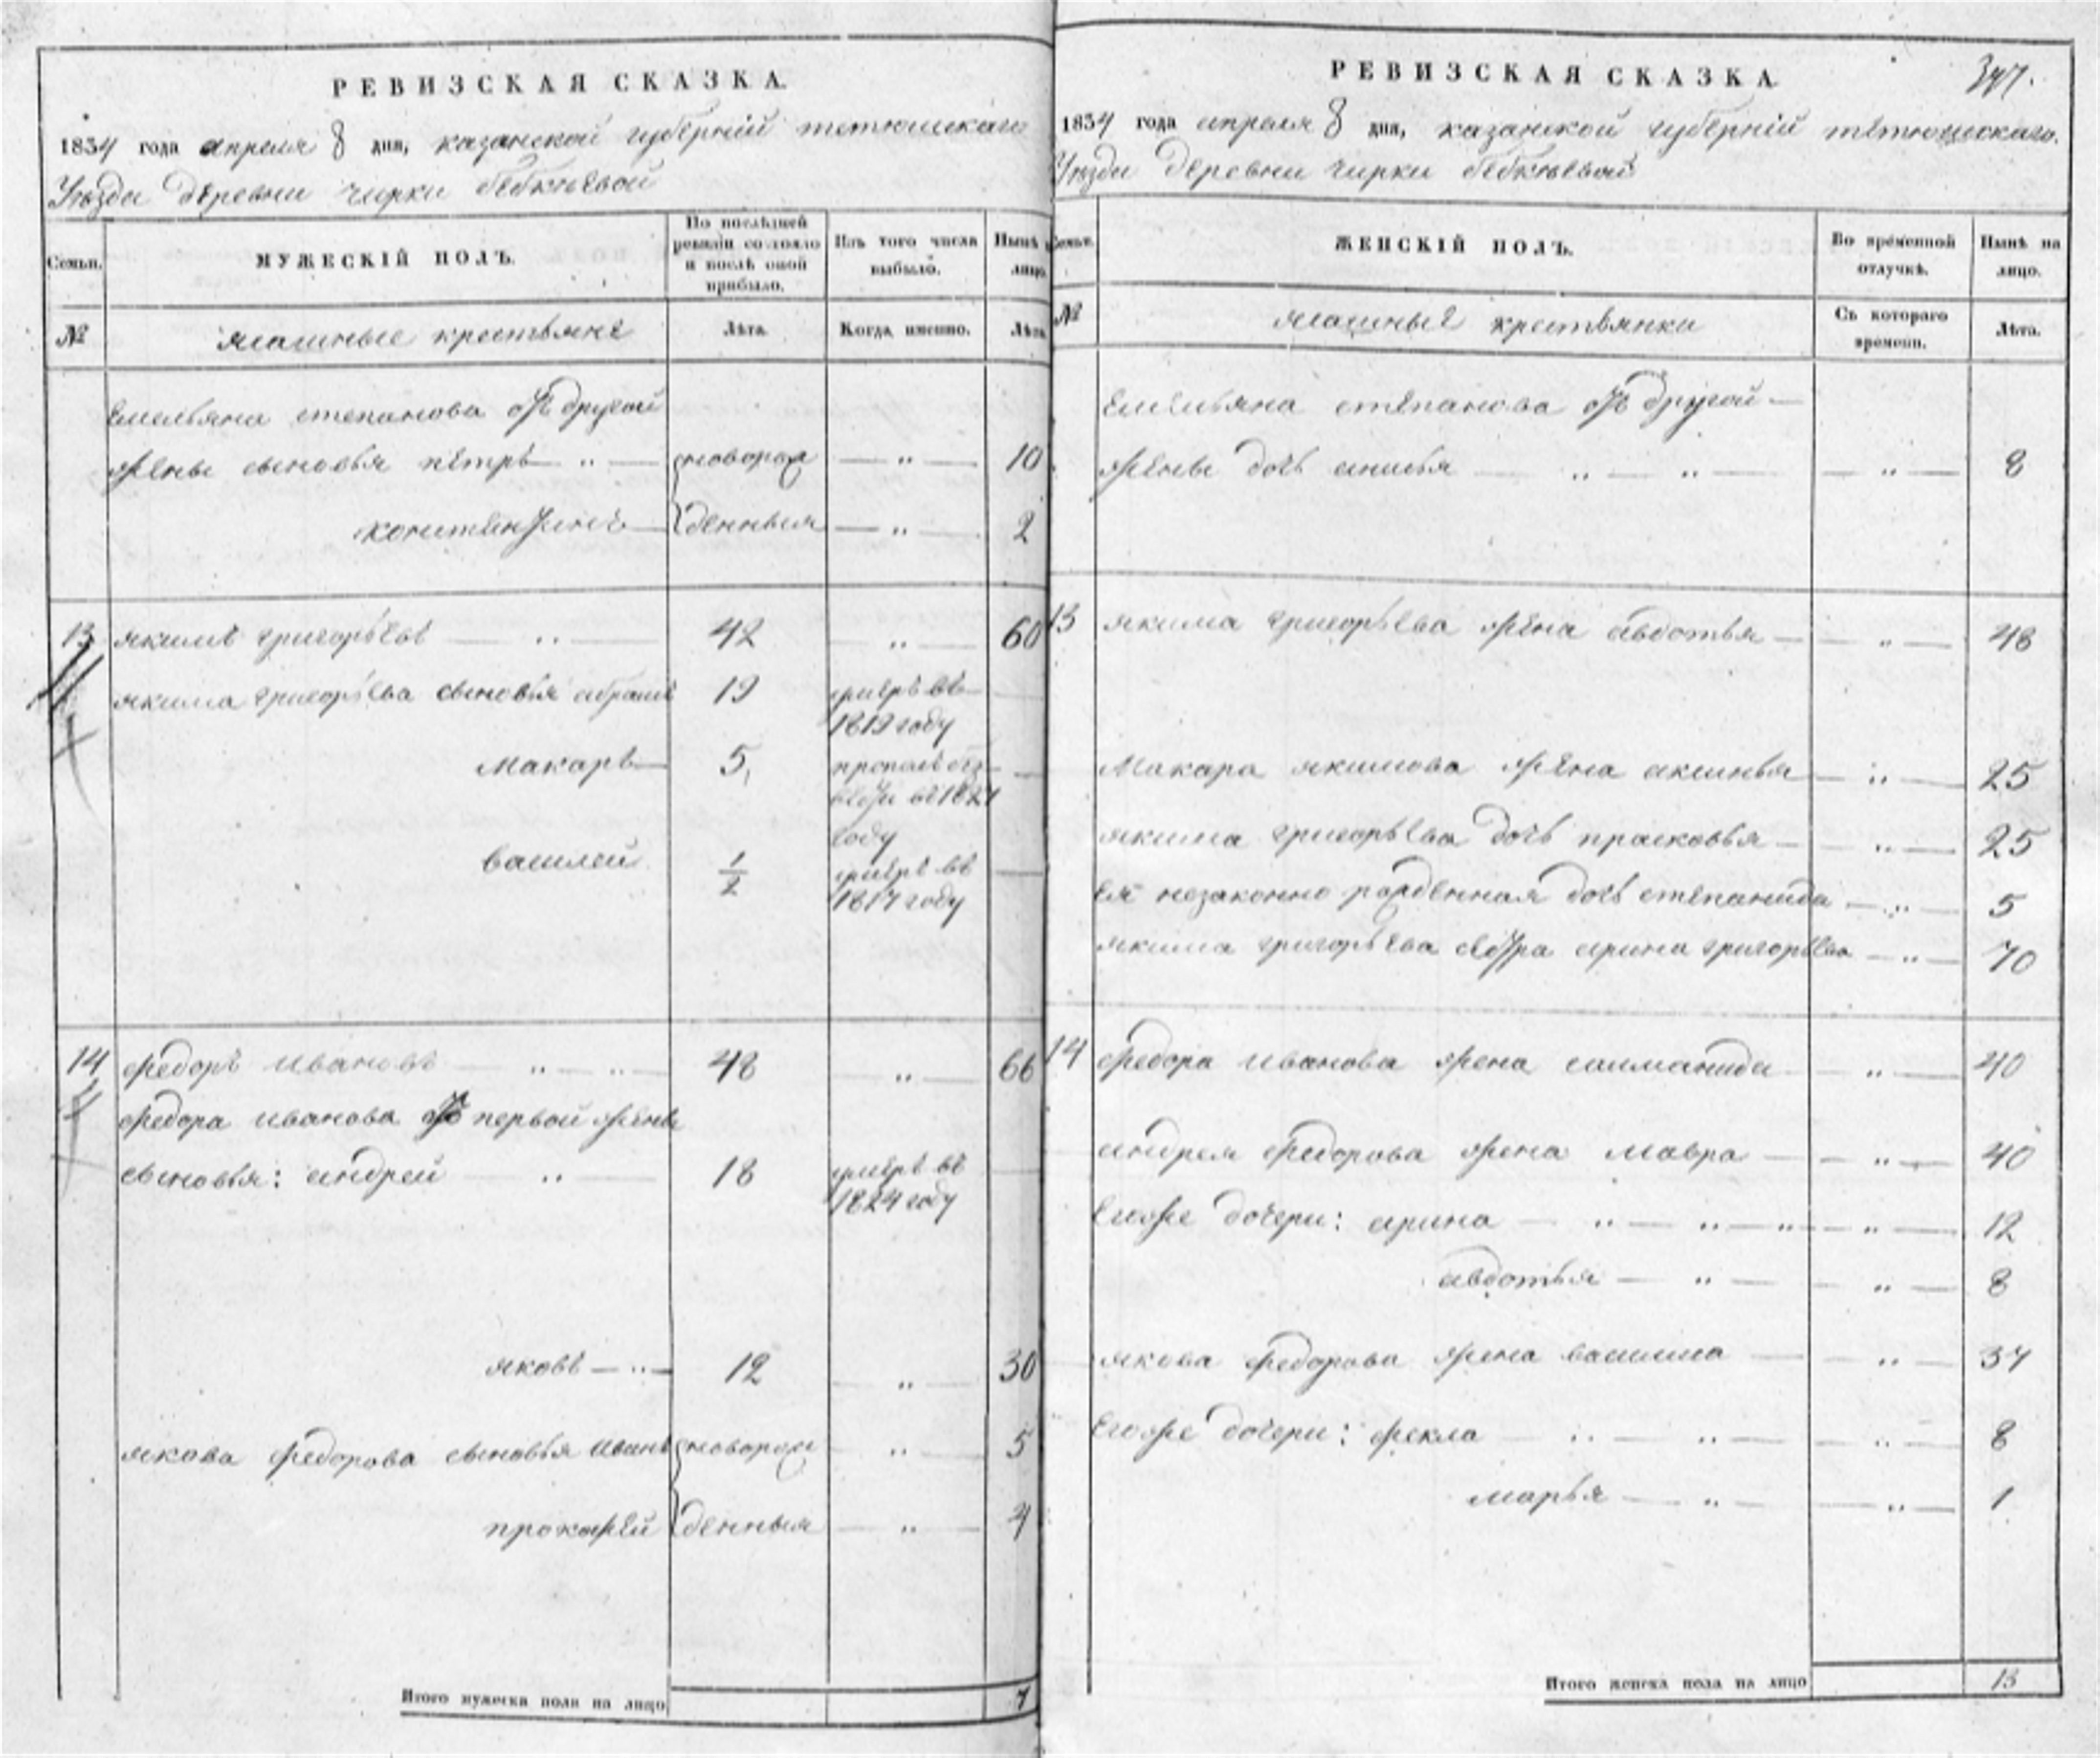 РЕВИЗСКАЯ СКАЗКА.
1834 года апреля 8 дня, казанской губерній тетюшскаго
Уѣзда деревни чирки бебкѣевой
Семьи.
МУЖЕСКІЙ ПОЛЪ.
По послѣдней ревизіи состояло и послѣ оной прибыло.
Изъ того числа выбыло.
Нынѣ на лицо.
№
ясашные крестьяне
Лѣта.
Когда именно.
Лѣта.
Емельяна степанова отъ другой
жены сыновья петръ — „ — новорож — „ — 10
констентинъ — денныя — „ — 2
13 якимъ григорьевъ — „ — 42 „ — 60
якима григорьева сыновья абрамъ 19 умеръ въ —
1819 году
макаръ — 5, пропалъ без —
вести въ 1821
году
василей 1/2 умеръ въ —
1817 году
14 федоръ ивановъ — „ — „ — 48 „ — 66
федора иванова отъ первой жены
сыновья: андрей — „ — 18 умеръ въ —
1824 году
яковъ — „ — 12 — „ — 30
якова федорова сыновья иванъ новорож — „ — 5
прокофей денныя — „ — 4
Итого мужеска пола на лицо 7
РЕВИЗСКАЯ СКАЗКА
347.
1834 года апреля 8 дня, казанской губерній тетюшскаго.
Уѣзда деревни чирки бебкѣевой
Семьи.
ЖЕНСКІЙ ПОЛЪ.
Во временной отлучкѣ.
Нынѣ на лицо.
№
ясашныя крестьянки
Съ котораго времени.
Лѣта.
Емельяна степанова отъ другой —
жены дочь анисья — „ — „ — — „ — 8
13 якима григорьева жена авдотья — — „ — 48
Макара якимова жена аксинья — „ — 25
якима григорьева дочь прасковья — — „ — 25
Ея незаконно рожденная дочь степанида — „ — 5
якима григорьева сестра арина григорьева — „ — 70
14 федора иванова жена салманида — „ — 40
андрея федорова жена мавра — — „ — 40
Егоже дочери: арина — „ — „ — „ — „ — 12
авдотья — „ — — „ — 8
якова федорова жена василиса — — „ — 34
Егоже дочери: фекла — „ — „ — — „ — 8
марья — „ — — „ — 1
Итого женска пола на лицо 13